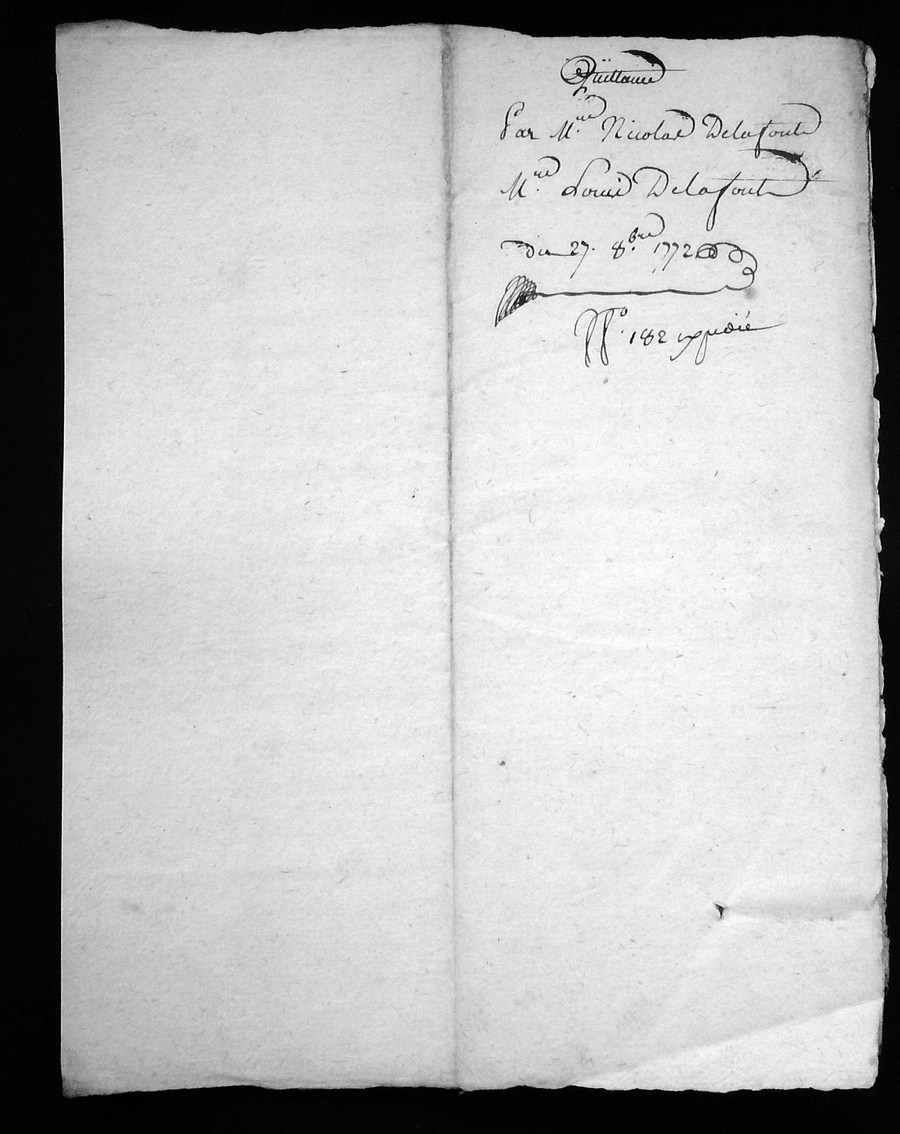 Quittance
Par Mire Nicolas Delafonte
Mre Louis Delafonte
du 27. 8bre 1772
No. 182 expedié